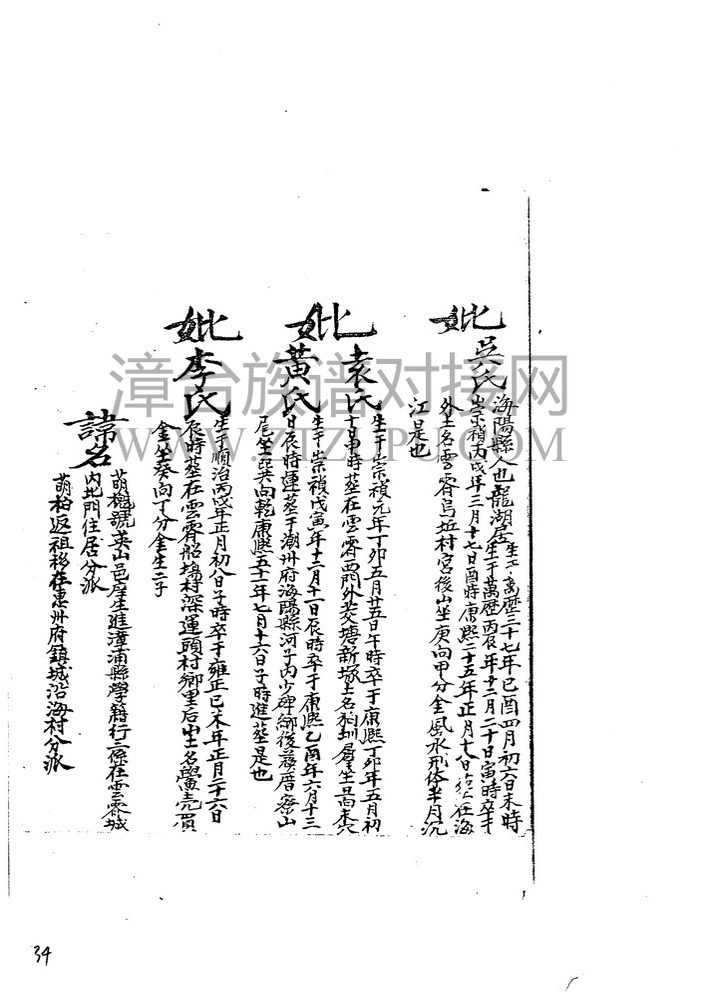 妣吳氏
海陽縣人也龍湖居生于萬歷三十七年己酉四月初六日未時
生于萬歷丙辰年十二月二十日寅時卒于
崇禎丙戌年三月十七日酉時康熙二十五年正月十八日在海
外土名雲霄烏坵村宮後山坐庚向甲分金風水飛俸半月沉
江是也
妣袁氏
生于崇禎元年丁卯五月廿五日午時卒于康熙丁卯年五月初
十日申時葬在雲霄西門外茭塘新塚土名狗圳厝坐丑向未穴
黃氏
生于崇禎戊寅年十二月十一日辰時卒于康熙乙酉年六月十三
日辰時運葬于潮州府海陽縣河子內少碑鄉後厝寮山
尾坐巽向乾康熙五十一年七月十六日子時進葬是也
妣李氏
生于順治丙戌年正月初八日子時卒于雍正己未年正月二十六日
辰時葬在雲霄船場村深運頭村鄉里后山土名黌売買
金坐癸向丁分金生二子
諱名
萌槐號英山邑庠生進漳浦縣學籍行三係在雲霄城
內北門住居分派
萌柏返祖移在惠州府鎮城沿海村分派
漳台族谱对接网
WWW.ZTZUPU.COM
34